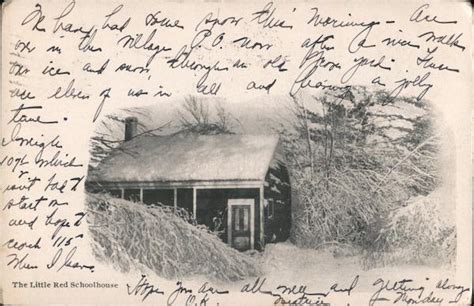 We have had some snow this morning - Are
over in the village P.O. now after a nice walk
over ice and snow, through an old Grave yard. There
are eleven of us in all and having a jolly
time.
I weigh
107½ which
isn't bad to
start on
and hope to
reach 115
when I leave
The Little Red Schoolhouse
Hope you are all well and getting along
O.K.
Beatrice
Monday -